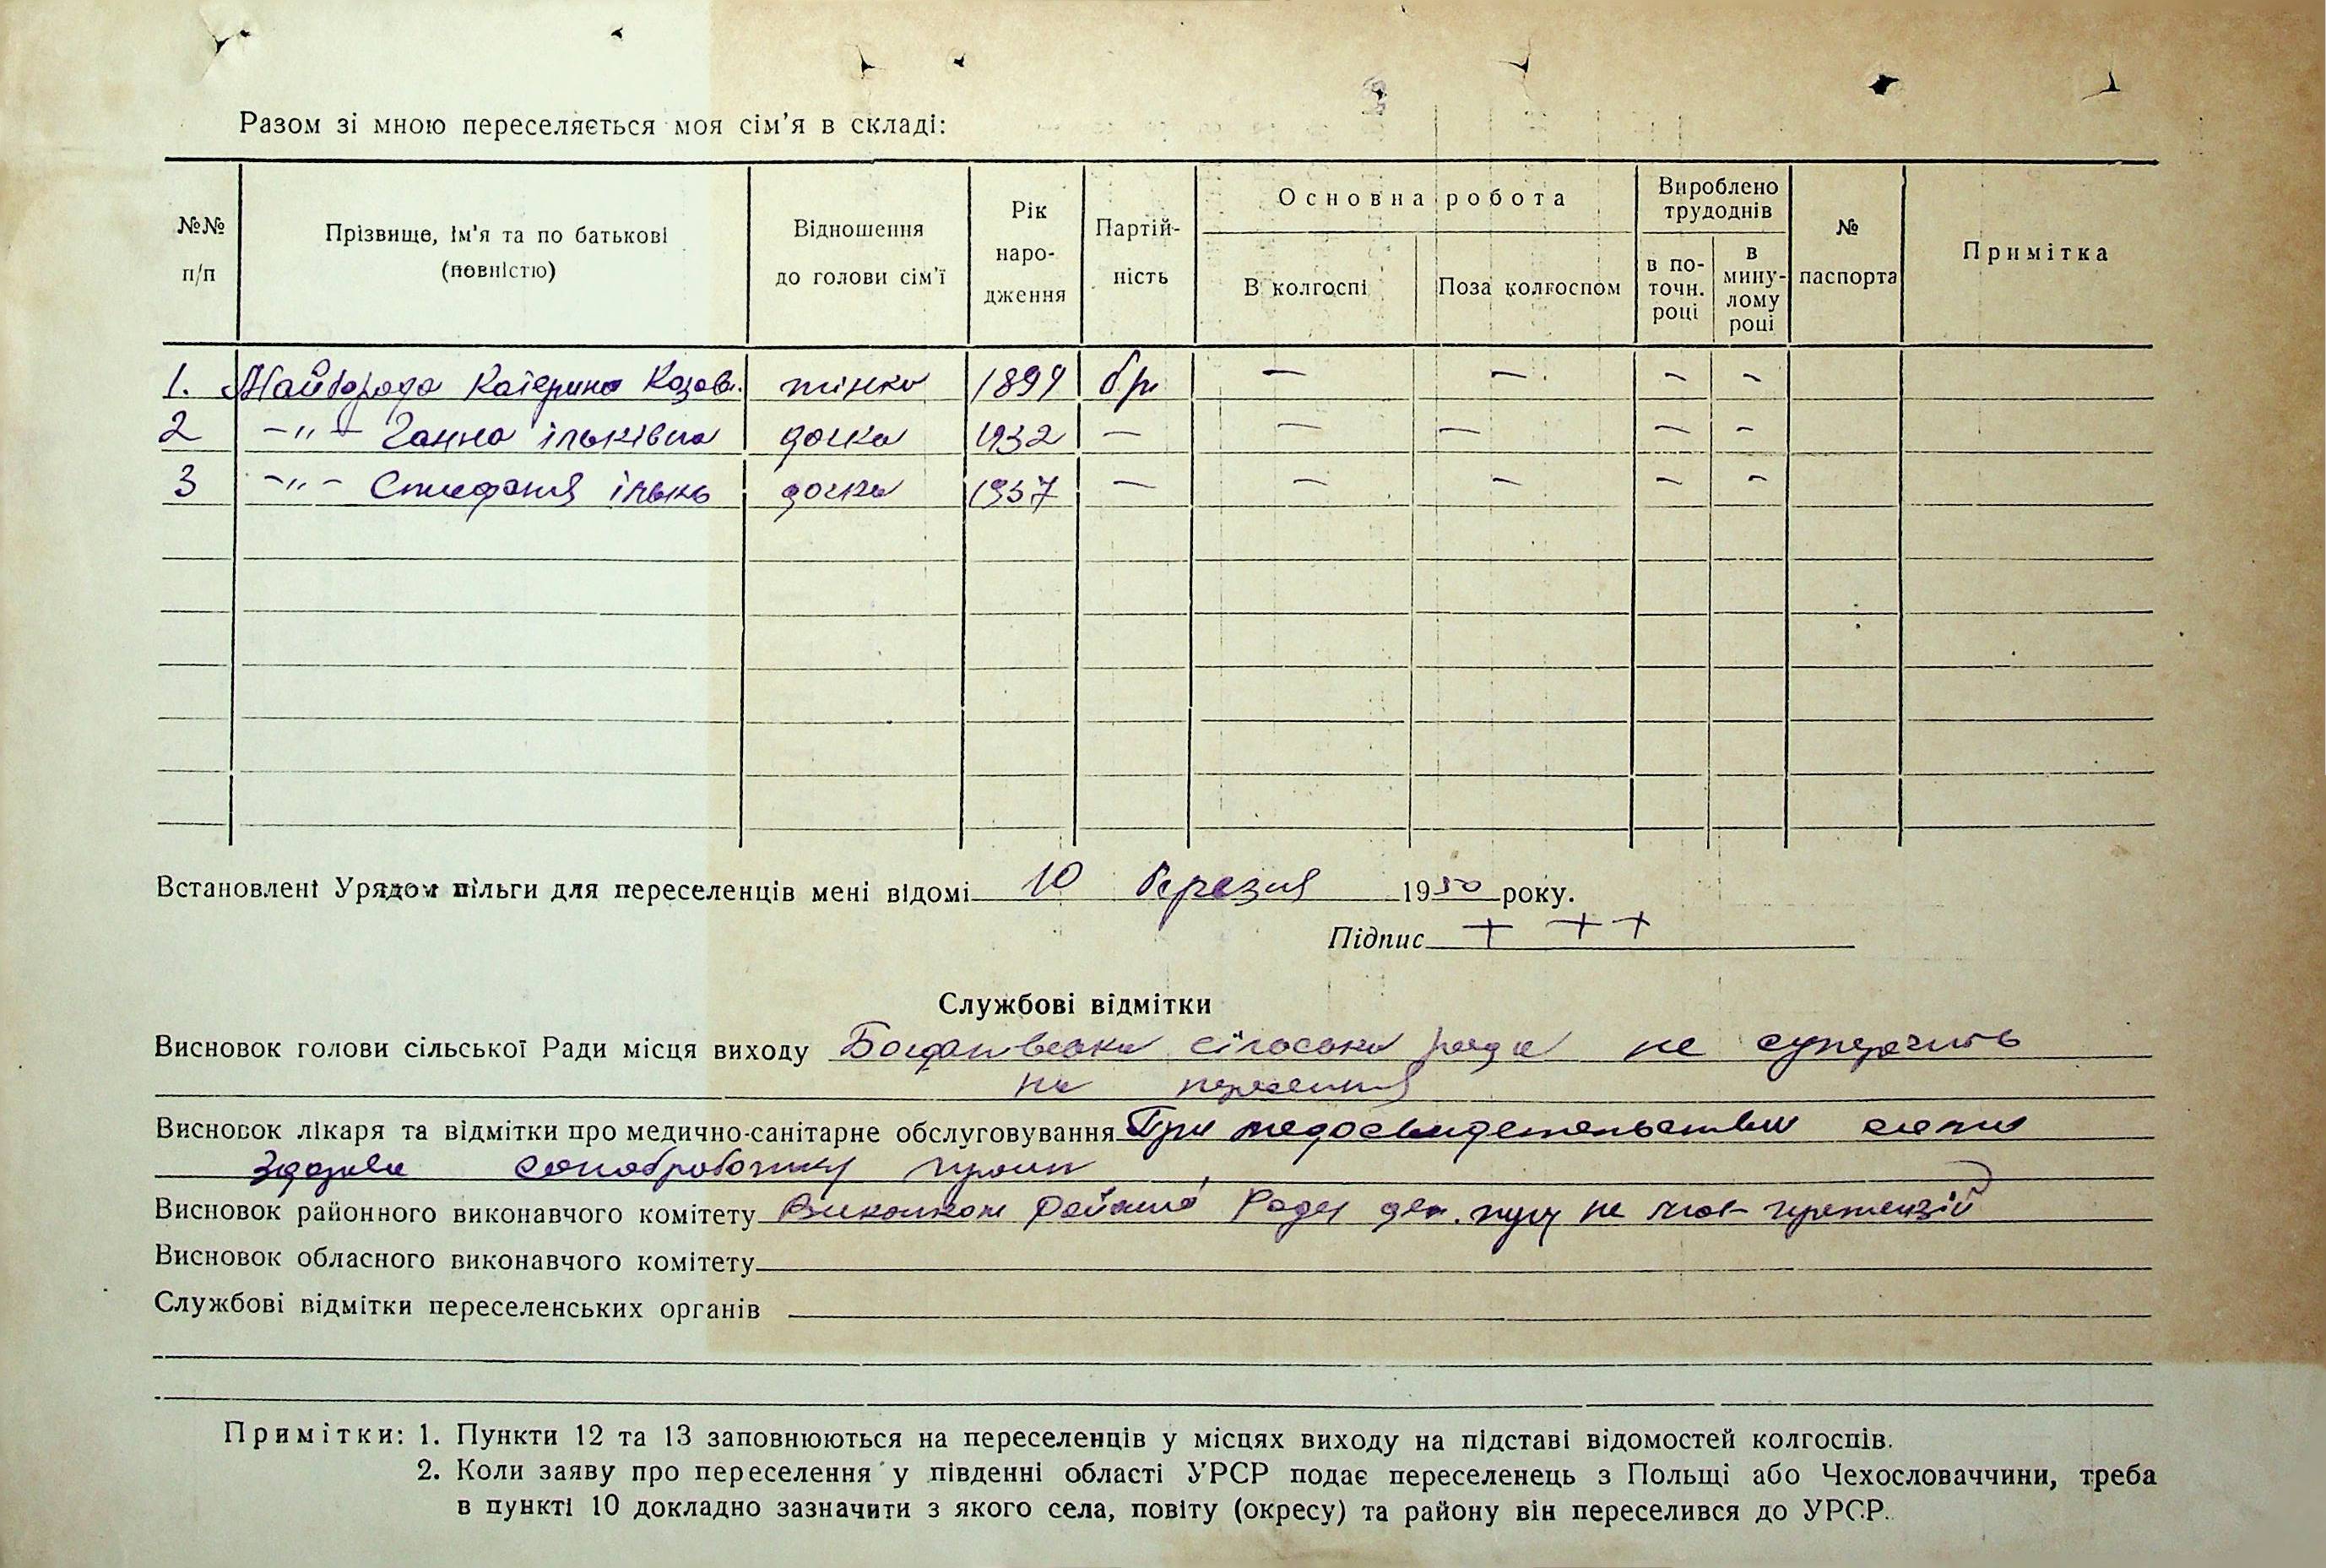 Разом зі мною переселяється моя сім'я в складі:
№№ п/п
Прізвище, ім'я та по батькові (повністю)
Відношення до голови сім'ї
Рік наро-дження
Партій-ність
Основна робота
В колгоспі
Поза колгоспом
Вироблено трудоднів
в по-точн. році
в мину-лому році
№ паспорта
Примітка
1. Майборода Катерина жінка 1899 бп — — — —
2 -"- Ганна Ільківна дочка 1932 — — — — —
3 -"- Стефанія Ільків дочка 1937 — — — — —
Встановлені Урядом пільги для переселенців мені відомі 10 березня 1950 року.
Підпис + + +
Службові відмітки
Висновок голови сільської Ради місця виходу Богданівська сільська рада не суперечить
на переселення
Висновок лікаря та відмітки про медично-санітарне обслуговування При медосвидетельствии
здорова санобработку
Висновок районного виконавчого комітету Виконком Ради деп. труд не має претензій
Висновок обласного виконавчого комітету
Службові відмітки переселенських органів
Примітки: 1. Пункти 12 та 13 заповнюються на переселенців у місцях виходу на підставі відомостей колгоспів.
2. Коли заяву про переселення у південні області УРСР подає переселенець з Польщі або Чехословаччини, треба
в пункті 10 докладно зазначити з якого села, повіту (окресу) та району він переселився до УРСР.